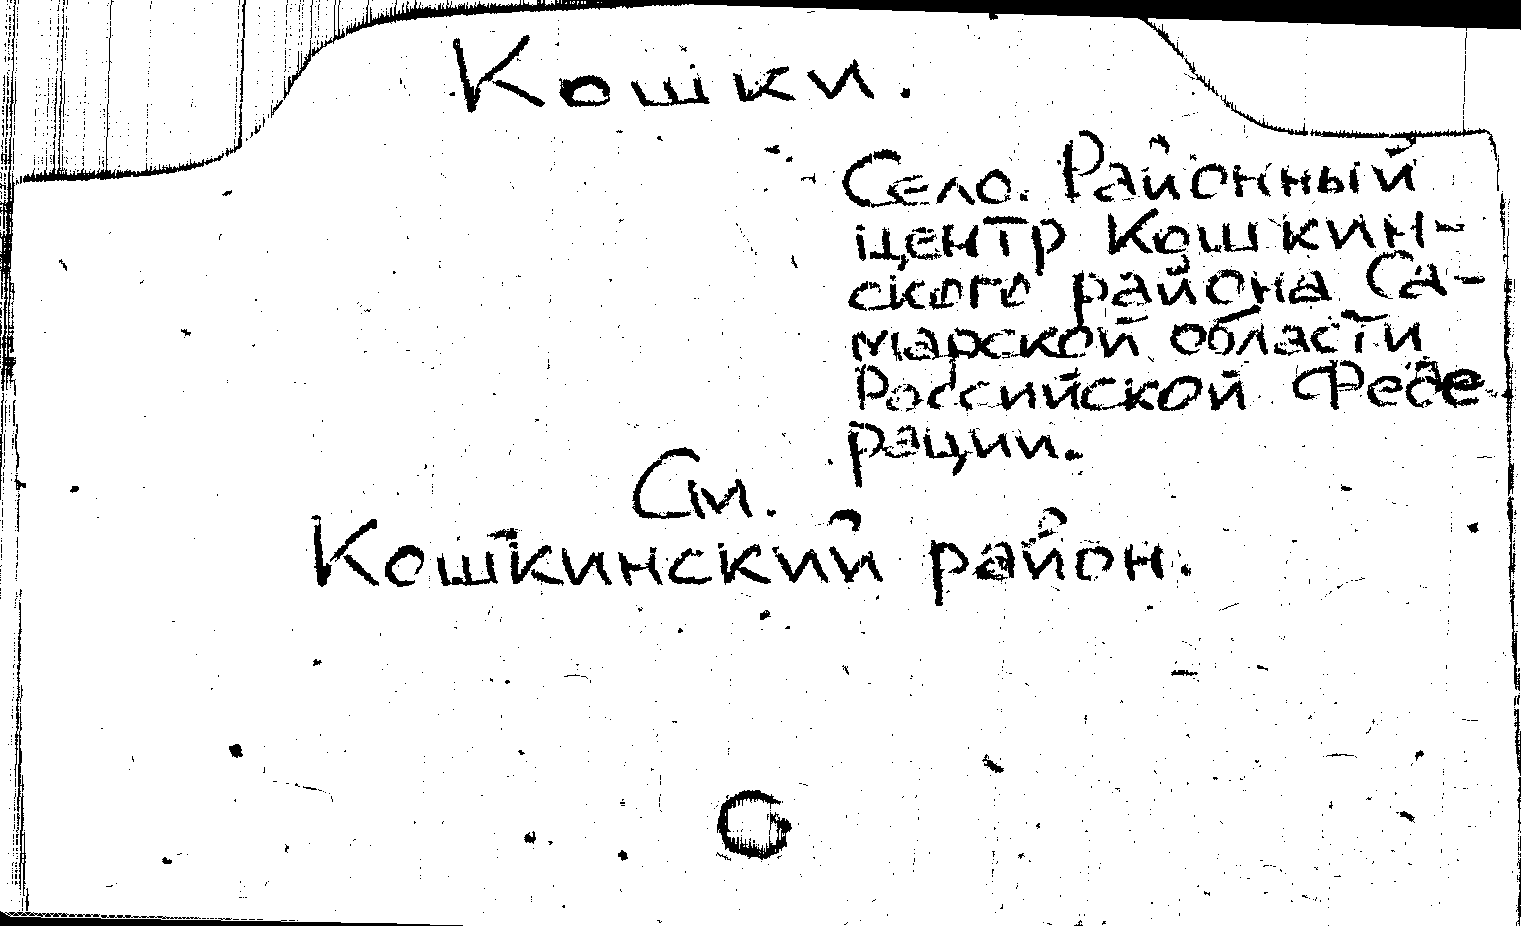 Кошки.
Село. Районный
центр Кошкин-
ского района Са-
марской области
Российской Феде
рации.
См.
Кошкинский район.